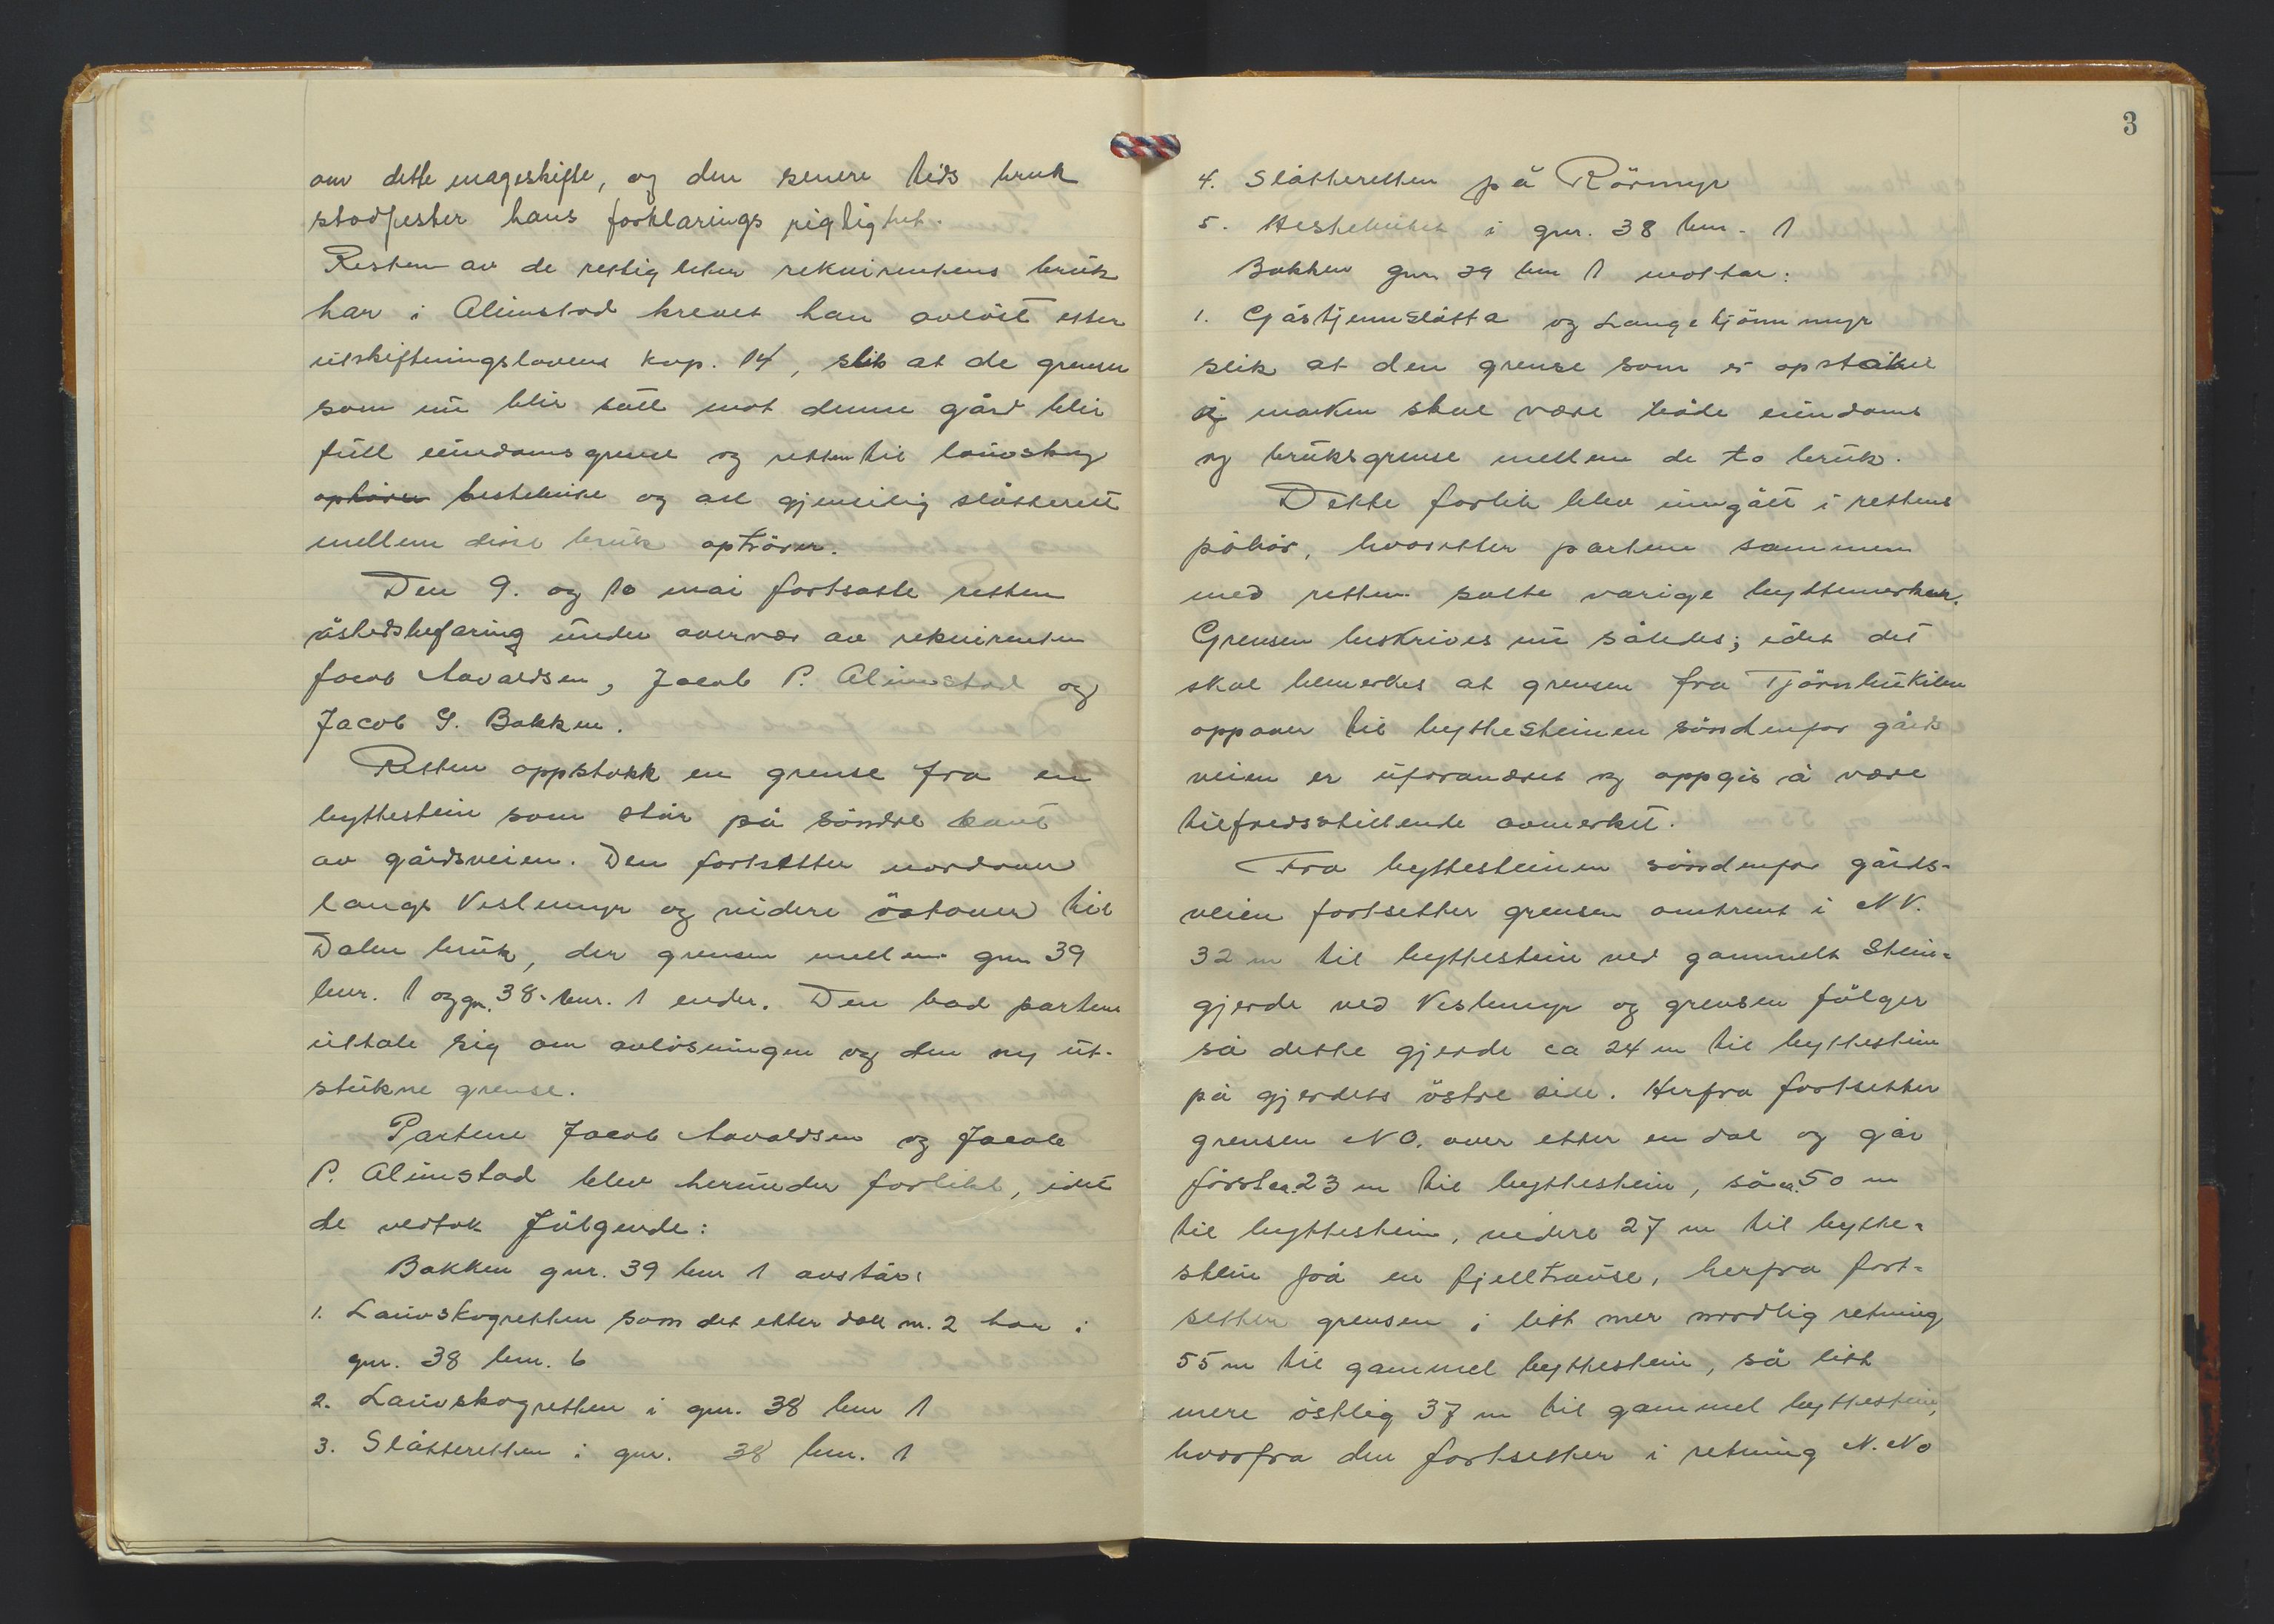 om dette mageskifte, og den senere tids bruk
stadfester hans forklarings rigtighet.
Resten av de rettigheter rekvirentens bruk
har i Alimstad krevet han avløst etter
utskiftningslovens kap. 14, slik at de grenser
som nu blir satt mot denne gård blir
full eiendomsgrense og retten til lauvskog
ophører hestebeite og all gjensidig slåtterett
mellem disse bruk ophører.
Den 9. og 10 mai fortsatte retten
åstedsbefaring under overvær av rekvirenten
Jacob Aavaldsen, Jacob P. Alimstad og
Jacob G. Bakken.
Retten oppstakk en grense fra en
byttestein som står på søndre kant
av gårdsveien. Den fortsetter nordover
langs Veslemyr og videre östover til
Dalen bruk, der grensen mellem gnr 39
bnr. 1 og gn. 38 bnr. 1 ender. Den bad partene
uttale sig om avlösningen og den ny ut-
stukne grense.
Partene Jacob Aavaldsen og Jacob
P. Alimstad blev herunder forlikt, idet
de vedtok fölgende:
Bakken gnr. 39 bnr 1 avstår:
1. Lauvskogretten som det etter dok nr. 2 har i
gnr. 38 bnr. 6
2. Lauvskogretten i gnr. 38 bnr 1
3. Slåtteretten i gnr. 38 bnr. 1
3
4. Slåtteretten på Rörmyr
5. Hestebeitet i gnr. 38 bnr. 1
Bakken gnr 39 bnr 1 mottar:
1. Gåstjennslåtta og Langetjönnmyr
slik at den grense som er opstukket
i marken skal være både eiendoms
og bruksgrense mellem de to bruk.
Dette forlik blev inngått i rettens
påhör, hvoretter partene sammen
med retten satte varige byttemerker.
Grensen beskrives nu således; idet det
skal bemerkes at grensen fra Tjörnbukilen
oppover til byttesteinen söndenfor gårds
veien er uforandret og oppgis å være
tilfredsstillende avmerket.
Fra byttesteinen söndenfor gårds-
veien fortsetter grensen omtrent i NV.
32 m til byttestein ved gammelt Stein-
gjerde ved Veslemyr og grensen fölger
så dette gjerde ca 24 m til byttestein
på gjerdets östre side. Herfra fortsetter
grensen NO. over etter en dal og går
först ca. 23 m til byttestein, så ca. 50 m
til byttestein, videre 27 m til bytte-
stein på en fjelltause, herfra fort-
setter grensen i litt mer nordlig retning
55 m til gammel byttestein, så litt
mere östlig 37 m til gammel byttestein,
hvorfra den fortsetter i retning N. No